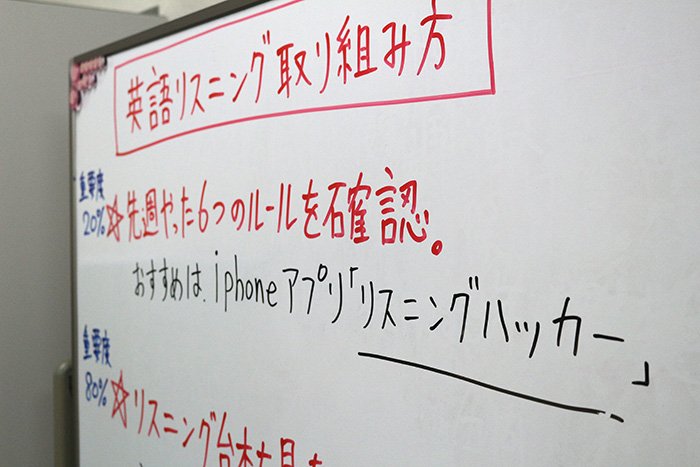 英語リスニング取り組み方
重要度
20% ☆先週やった6つのルールを確認。
おすすめは、iphoneアプリ「リスニングハッカー」
重要度
80% ☆リスニング台本を見